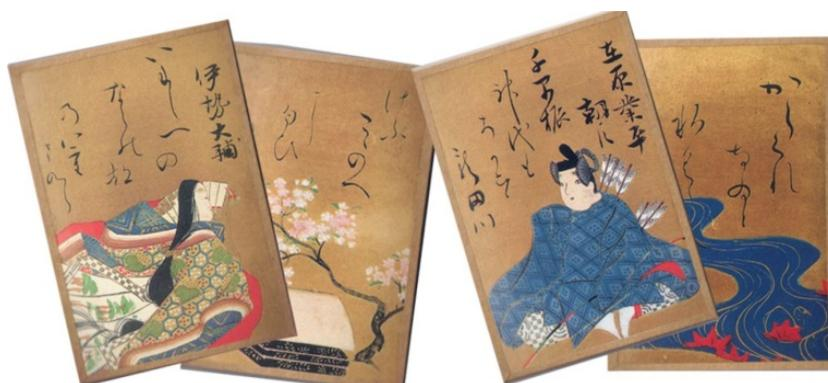 伊勢大輔
いにしへの
ならの都
の八重
さくら
けふ
こゝのへ
在原業平
朝臣
千早振
神代も
きかす
龍田川
からくれ
なゐに